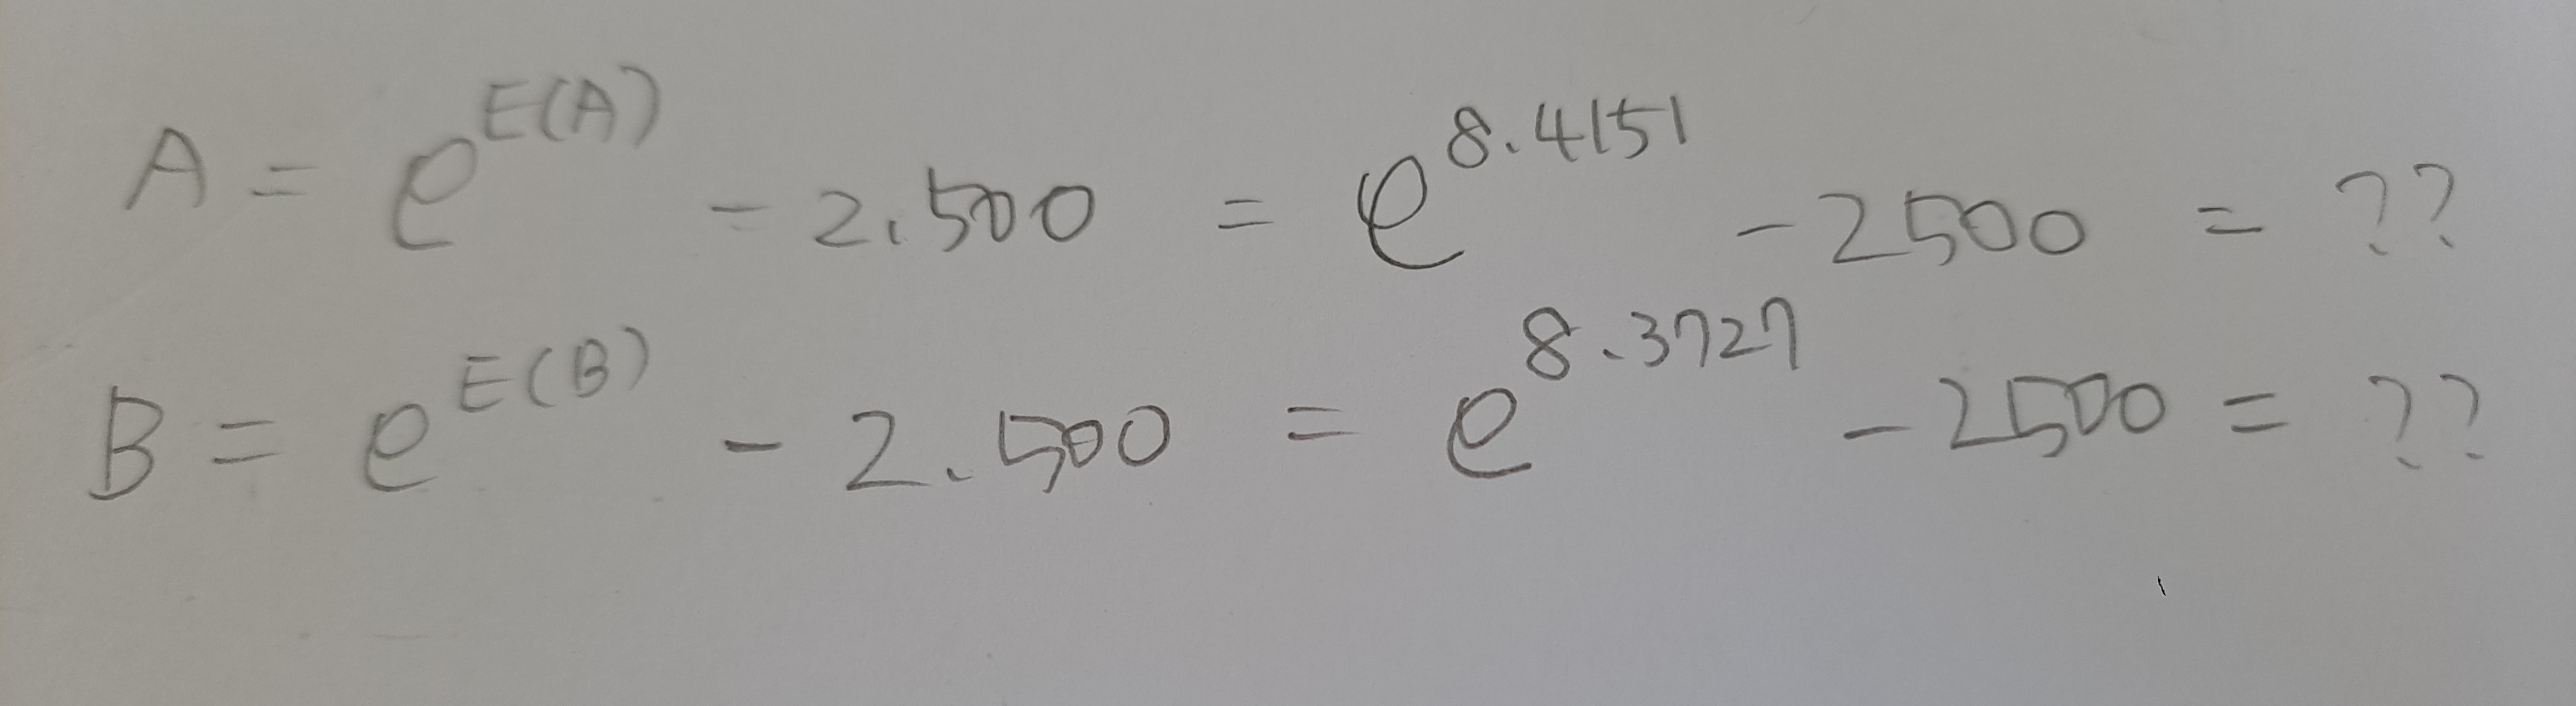 A = e^E(A) - 2.500 = e^8.4151 - 2500 = ??
B = e^E(B) - 2.500 = e^8.3727 - 2500 = ??